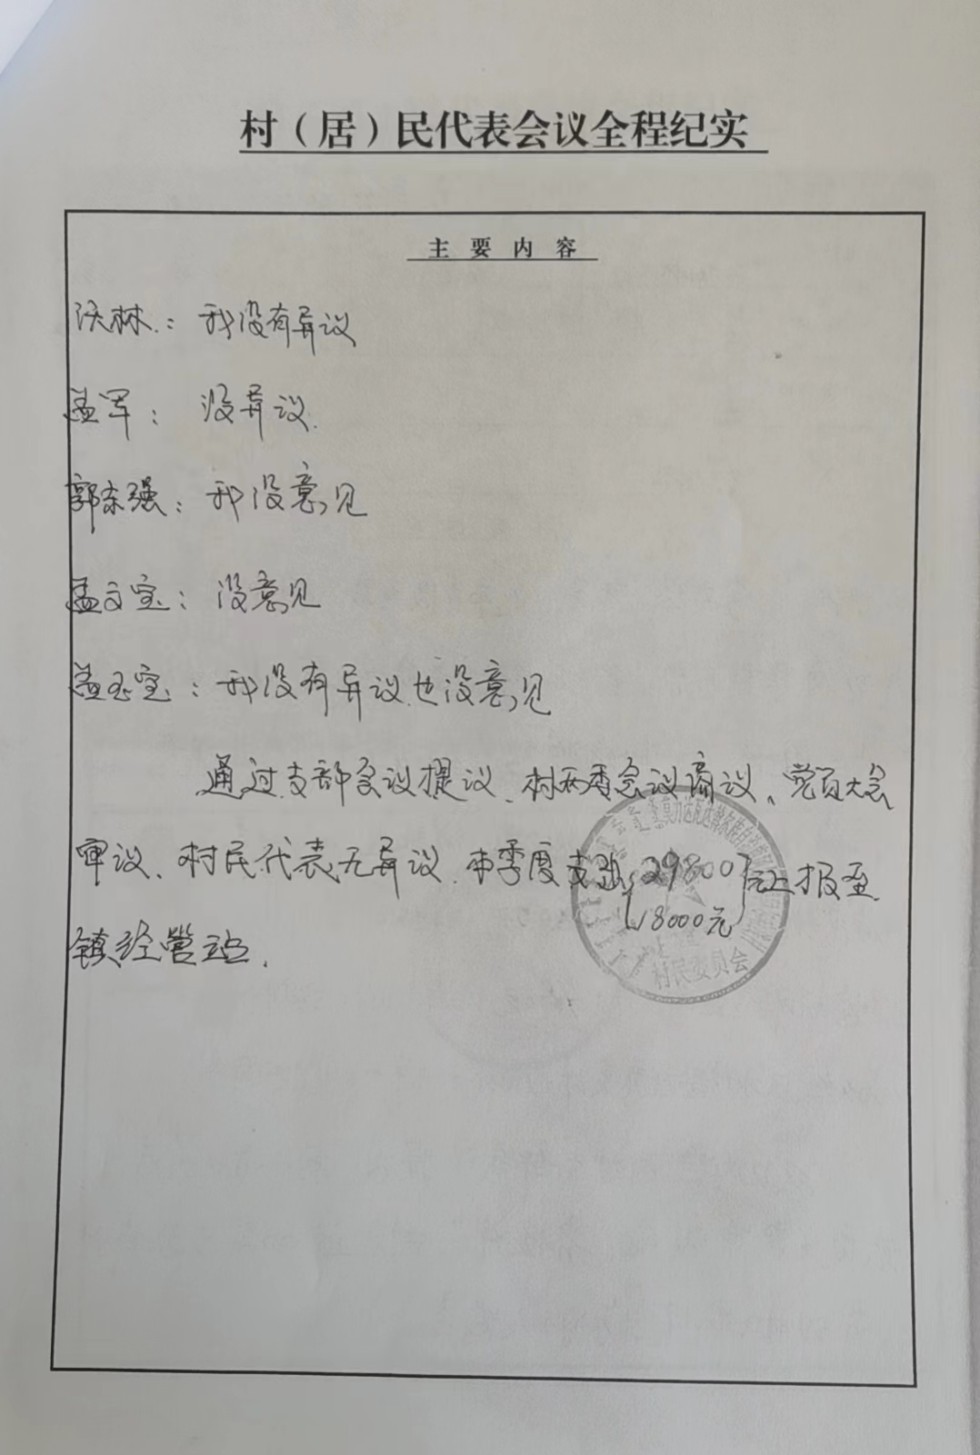 村（居）民代表会议全程纪实
主要内容
沃林：我没有异议
孟军：没异议.
郭东强：我没意见
孟文宝：没意见
孟玉宝：我没有异议也没意见
通过支部会议提议、村两委会议商议、党员大会
审议、村民代表无异议.本季度支出29800元上报至
18000元
镇经营站.
村民委员会